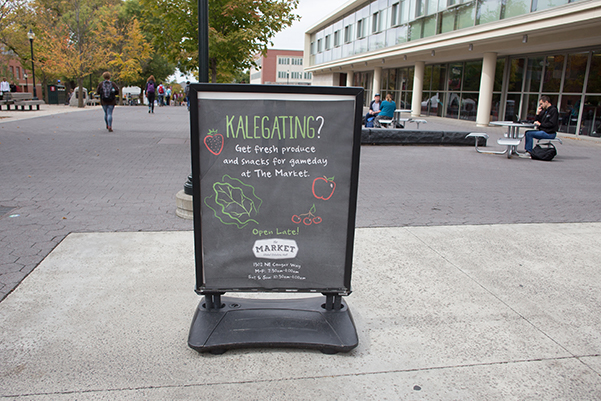 KALEGATING?
Get fresh produce
and snacks for gameday
at The Market.
Open Late!
THE
MARKET
1515 NE Cougar Way
M-F: 7:30am-1:00am
Sat & Sun: 10:30am-1:00am